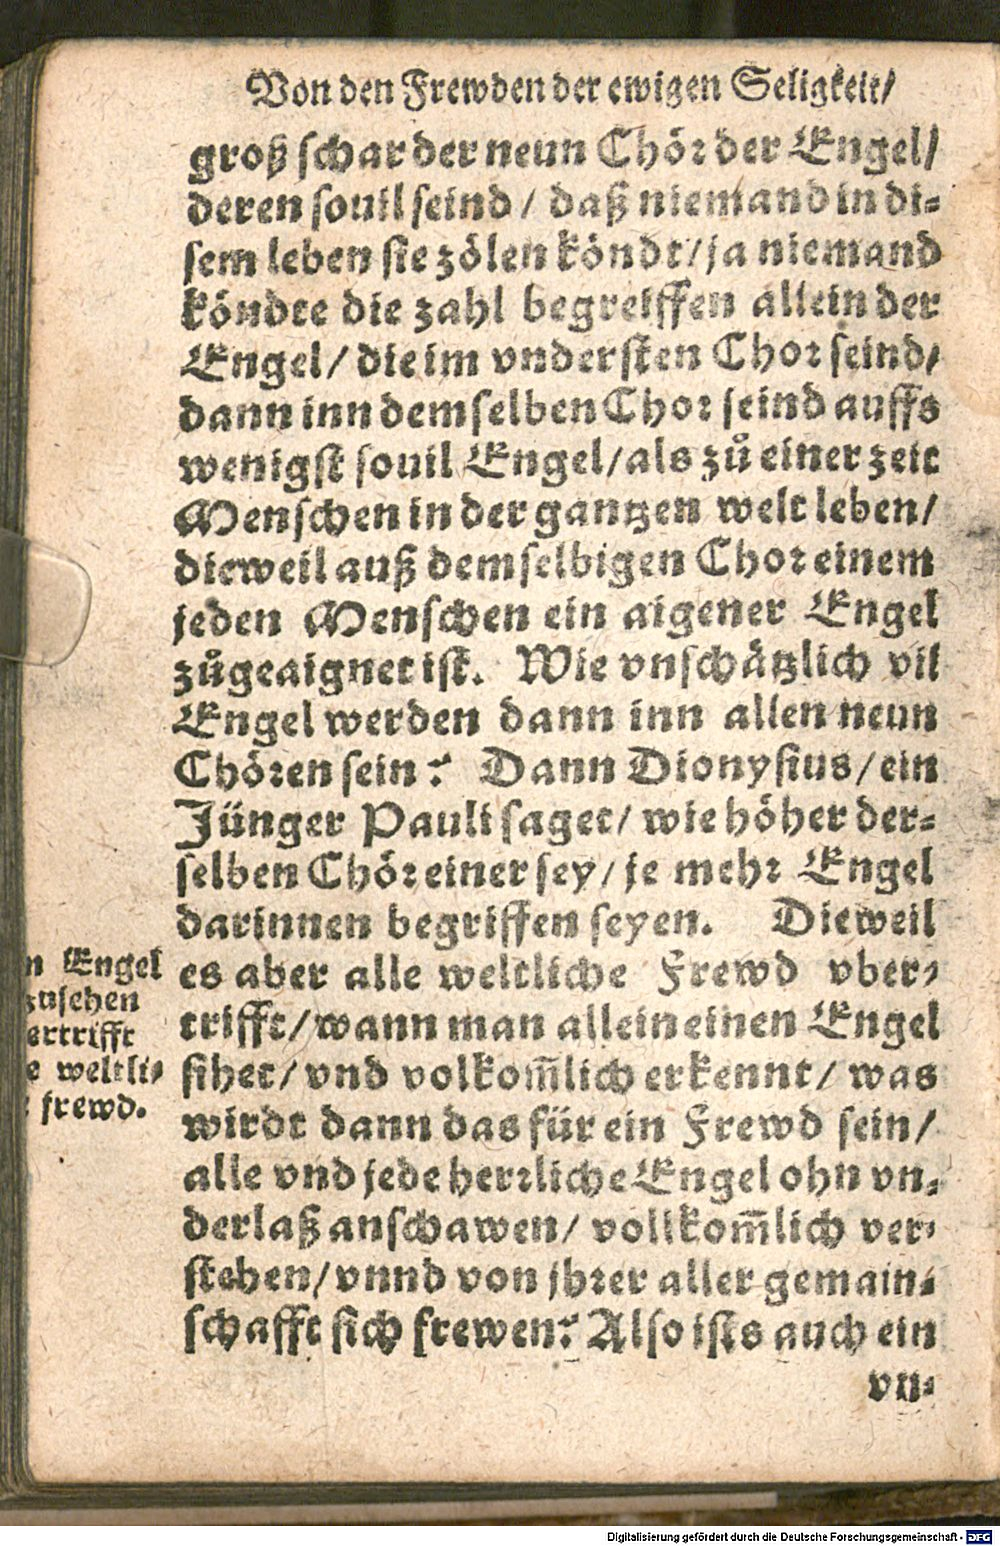 Von den Frewden der ewigen Seligkeit/
groß schar der neun Chör der Engel/
deren souil seind / daß niemand in di-
sem leben sie zölen köndt/ ja niemand
köndte die zahl begreiffen allein der
Engel/ die im vndersten Chor seind/
dann inn demselben Chor seind auffs
wenigst souil Engel/ als zů einer zeit
Menschen in der gantzen welt leben/
dieweil auß demselbigen Chor einem
jeden Menschen ein aigener Engel
zůgeaignet ist. Wie vnschätzlich vil
Engel werden dann inn allen neun
Chören sein? Dann Dionysius/ ein
Jünger Pauli saget/ wie höher der-
selben Chör einer sey/ je mehr Engel
darinnen begriffen seyen. Dieweil
es aber alle weltliche Frewd vber-
trifft/ wann man allein einen Engel
sihet/ vnd volkom̃lich erkennt/ was
wirdt dann das für ein Frewd sein/
alle vnd jede herrliche Engel ohn vn-
derlaß anschawen/ vollkom̃lich ver-
stehen/ vnnd von jhrer aller gemain-
schafft sich frewen? Also ists auch ein
vn-
n Engel
zusehen
ertrifft
e weltli-
frewd.
Digitalisierung gefördert durch die Deutsche Forschungsgemeinschaft - DFG